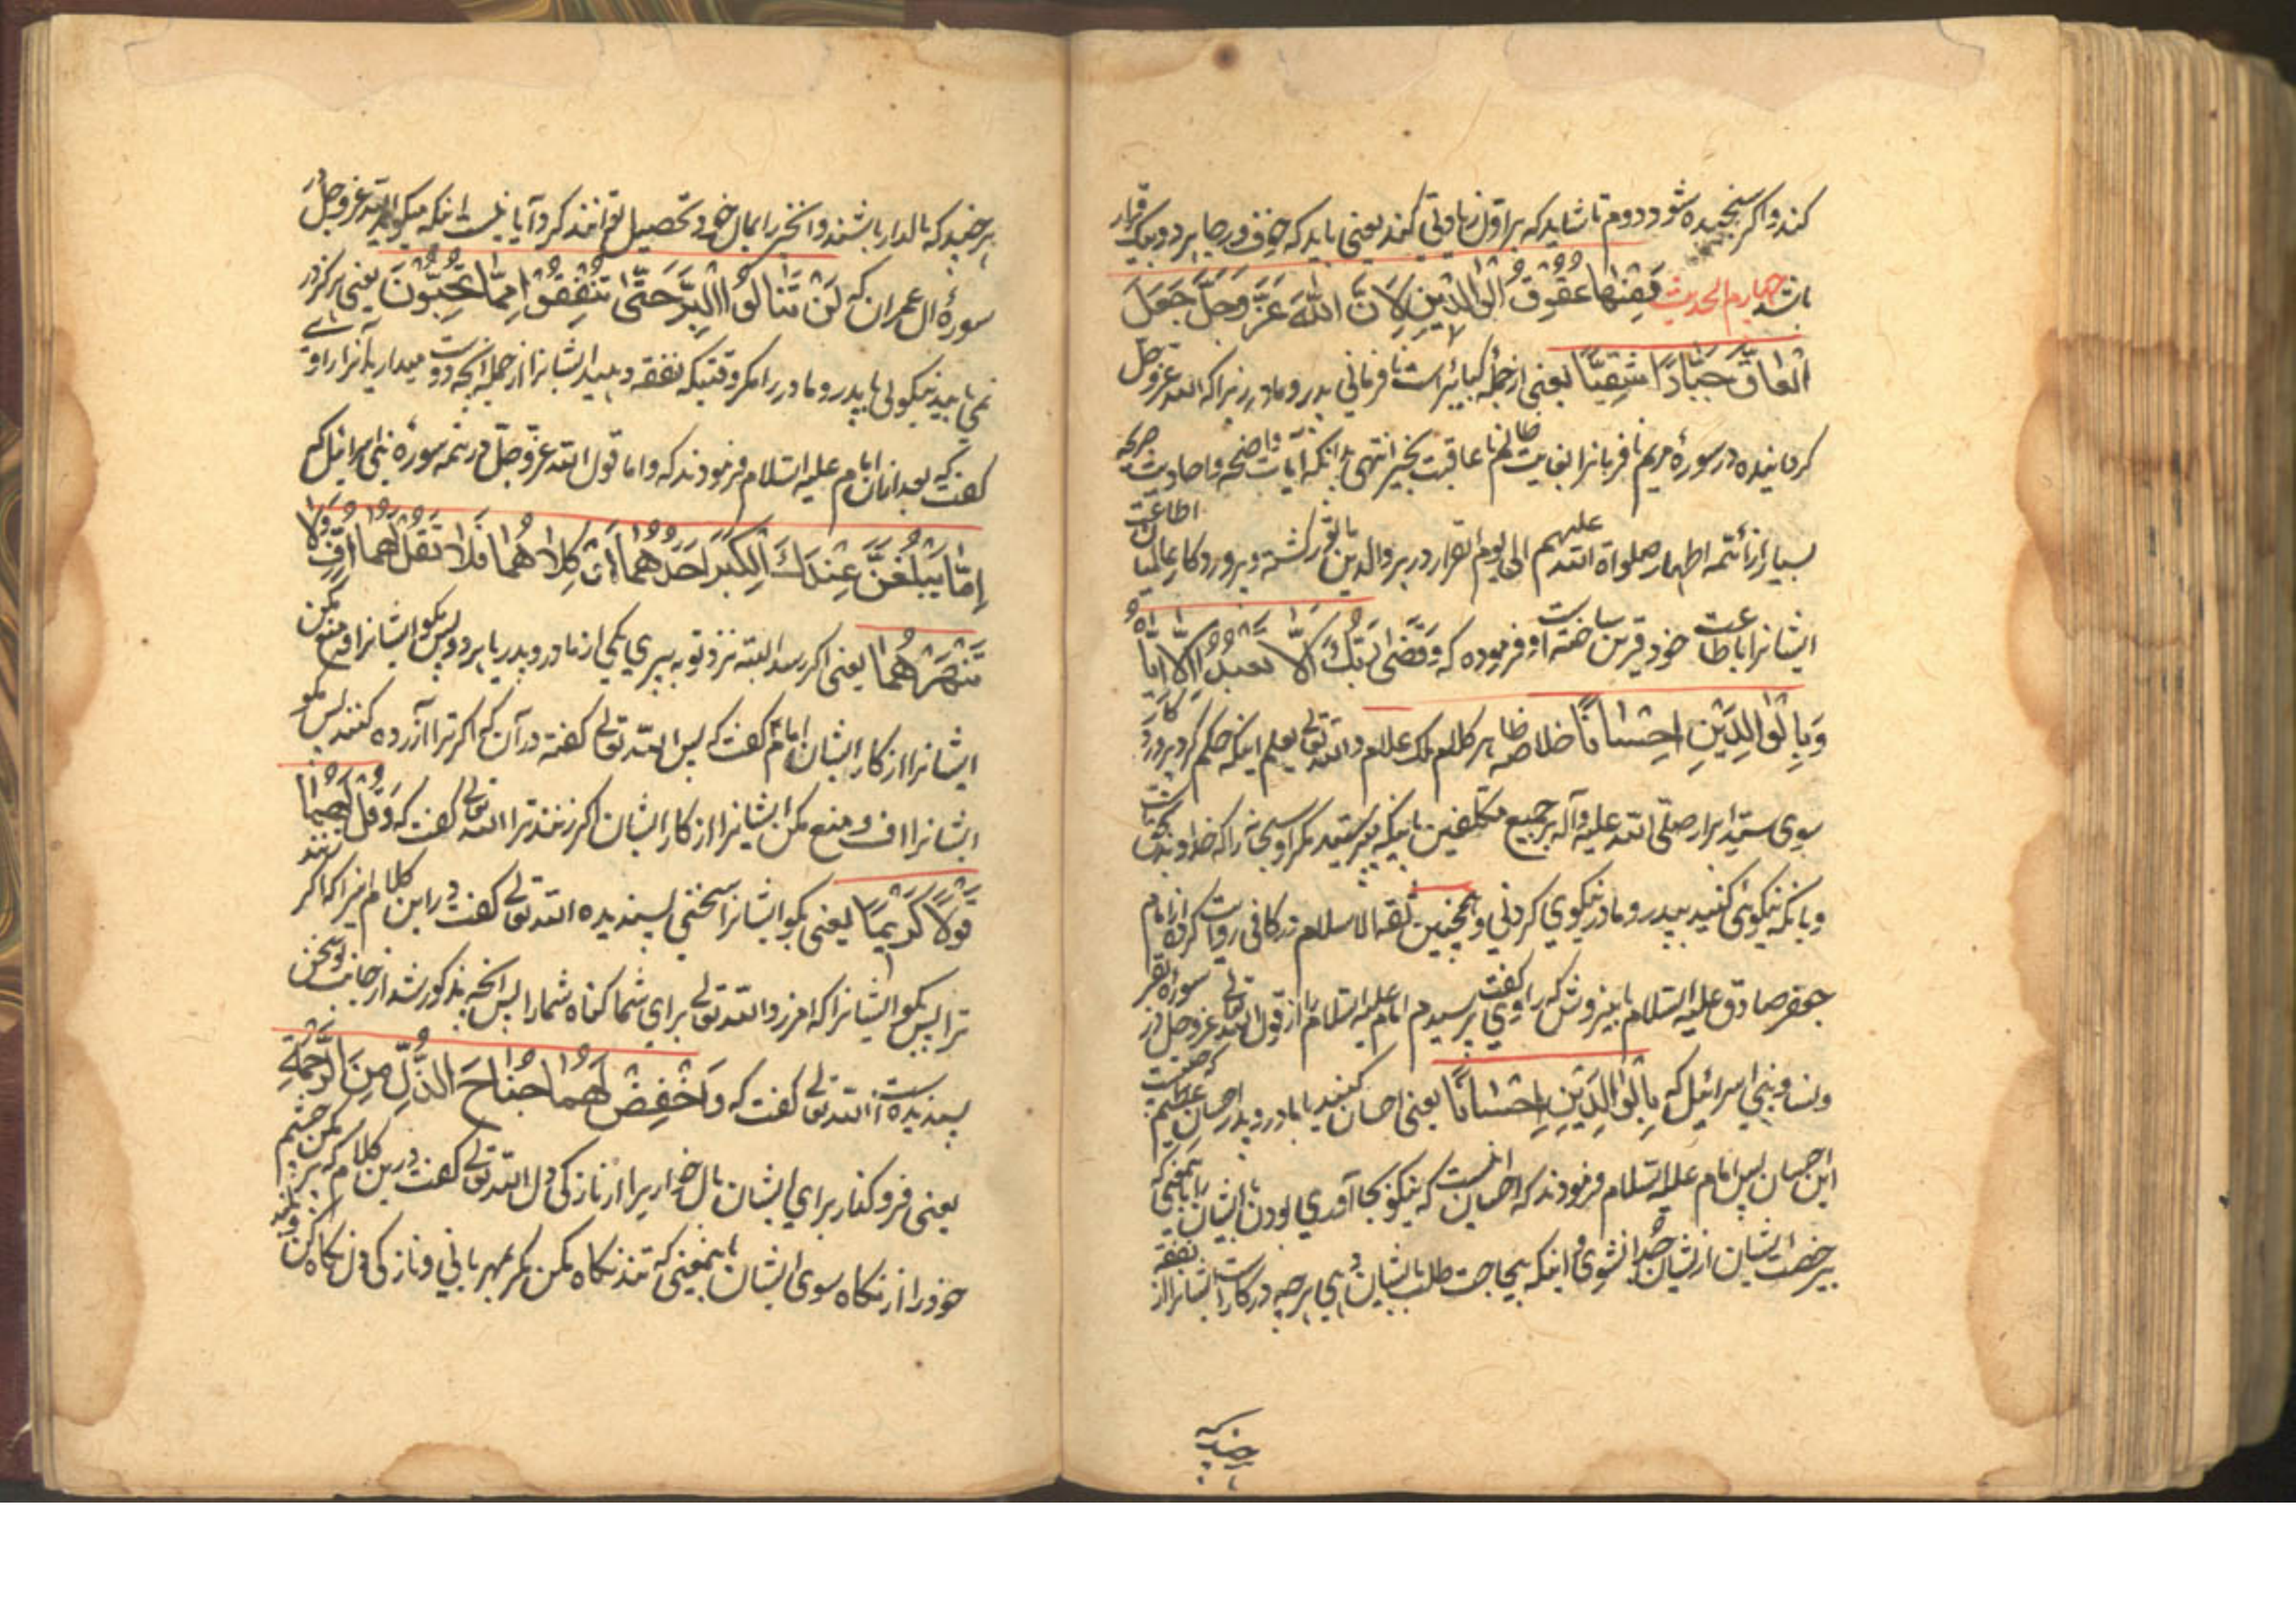 کند و اگر سنجیده شود دوم تا شاید که بر اول زیادتی کند یعنی باید که خوف و رجا هر دو بیک قرار
باشد چهارم الحدیث فَمِنْهَا عُقُوقُ الْوَالِدَیْنِ لِاَنَّ اللّٰهَ عَزَّ وَجَلَّ جَعَلَ
الْعَاقَّ جَبَّارًا شَقِیًّا یعنی از جمله کبائر است نا فرمانی پدر و مادر زیرا که الله عز وجل
گردانیده در سورهٔ مریم نافرمانرا بغایت ظالم نا عاقبت بخیر انتهی بدانکه آیات واضحه و احادیث صریحه
بسیار از ائمه اطهار صلواة الله علیهم الی یوم القرار در بر والدین بالقوه گشته و پروردگار عالم اطاعت
ایشانرا باطاعت خود قرین ساخته است و فرموده که وَقَضٰی رَبُّكَ اَلَّا تَعْبُدُوْا اِلَّا اِیَّاهُ
وَبِالْوَالِدَیْنِ اِحْسَانًا خلاصه ظاهر کلام ملک علام والله تعالی یعلم اینکه حکم کرد پروردگارت
بسوی سید ابرار صلّی الله علیه وآله بر جمیع مکلفین باینکه نپرستید مگر او سبحانه را که خداوند یکتاست
و بانکه نیکوئی کنید بپدر و مادر نیکوی کردنی و همچنین ثقة الاسلام در کافی روایت کرده از امام
جعفر صادق علیه السلام باینروش که راوی گفت پرسیدم امام علیه السلام را از قول الله تعالی عز وجل در سوره بقر
و نسا و بنی اسرائیل که بِالْوَالِدَیْنِ اِحْسَانًا یعنی احسان کنید با مادر و پدر احسان عظیم که چیست
این احسان پس امام علیه السلام فرمودند که احسان اینست که نیکو بجا آوری بودن با ایشان را باینمعنی که
بیرخصت ایشان از ایشان جدا نشوی و اینکه بیحاجت طلب بایشان دهی هر چه در کار است ایشانرا از نفقه
هر چند که
هر چند که مالدار باشند و آنخیر را بمال خود تحصیل توانند کرد آیا نیست اینکه میگوید الله عز وجل در
سورهٔ ال عمران که لَنْ تَنَالُوا الْبِرَّ حَتّٰی تُنْفِقُوْا مِمَّا تُحِبُّوْنَ یعنی هرگز در
نمی یابید نیکوئی با پدر و مادر را مگر وقتیکه نفقه دهید ایشانرا از جمله آنچه دوست میدارید آنرا راوی
گفت که بعد ازان امام علیه السلام فرمودند که و اما قول الله عز وجل در تتمه سورهٔ بنی اسرائیل که
اِمَّا یَبْلُغَنَّ عِنْدَكَ الْکِبَرَ اَحَدُهُمَا اَوْ کِلَاهُمَا فَلَا تَقُلْ لَهُمَا اُفٍّ وَلَا
تَنْهَرْهُمَا یعنی اگر رسد البته نزد تو به پیری یکی از مادر و پدر یا هر دو پس مگو ایشانرا اف و منع مکن
ایشانرا از کار ایشان امام گفت که پس الله تعالی گفته در آن که اگر ترا آزرده کنند پس مگو
ایشانرا اف و منع مکن ایشانرا از کار ایشان اگر زنند ترا الله تعالی گفت که وَقُلْ لَهُمَا
قَوْلًا کَرِیْمًا یعنی بگو ایشانرا سخنی پسندیده الله تعالی گفت در این کلام میرا که اگر زنند
ترا پس بگو ایشانرا که امرزد الله تعالی برای شما گناه شما را پس آنچه مذکور شد از جانب تو سخن
پسندیده است الله تعالی گفت که وَاخْفِضْ لَهُمَا جَنَاحَ الذُّلِّ مِنَ الرَّحْمَةِ
یعنی فرو گذار برای ایشان بال خواریرا از نازکی دل الله تعالی گفت درین کلام که پر مکن چشم
خود را از نگاه سوی ایشان باینمعنی که تند نگاه مکن مگر بمهربانی و نازکی دل نگاه کن و بلند